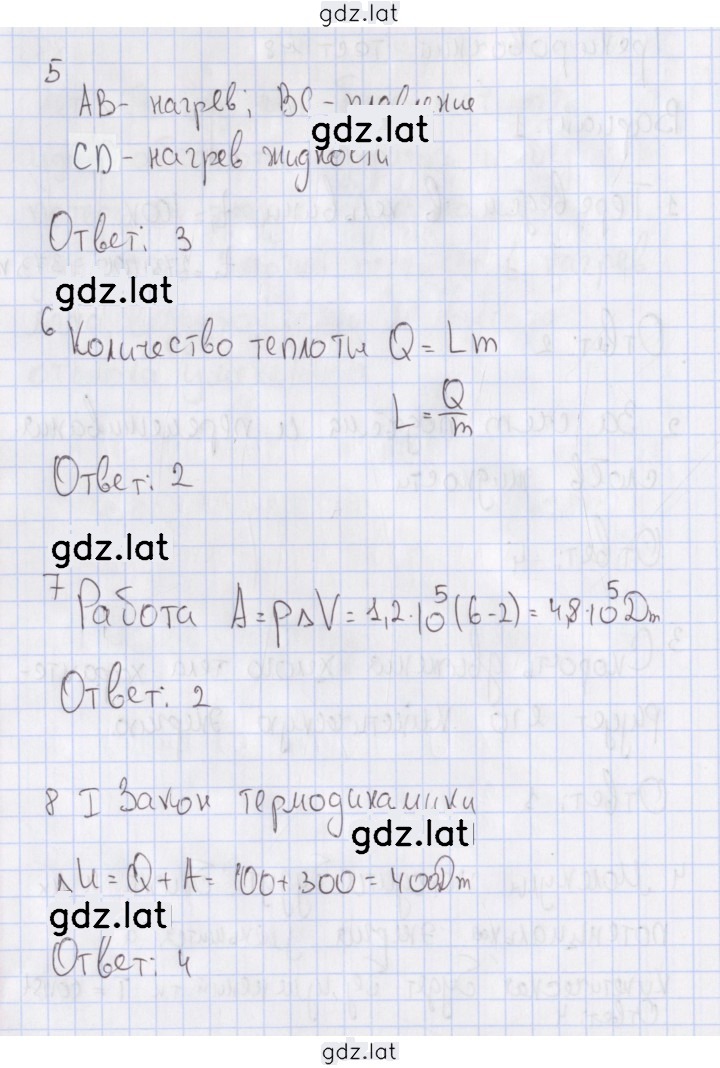 gdz.lat
5
AB- нагрев; BC - плавление
gdz.lat
CD - нагрев жидкости
Ответ: 3
gdz.lat
6 Количество теплоты Q = Lm
L = Q/m
Ответ: 2
gdz.lat
7 Работа A = pΔV = 1,2·10⁵(6-2) = 4,8·10⁵Dm
Ответ: 2
8 I Закон термодинамики
gdz.lat
ΔU = Q + A = 100 + 300 = 400Dm
gdz.lat
Ответ: 4
gdz.lat